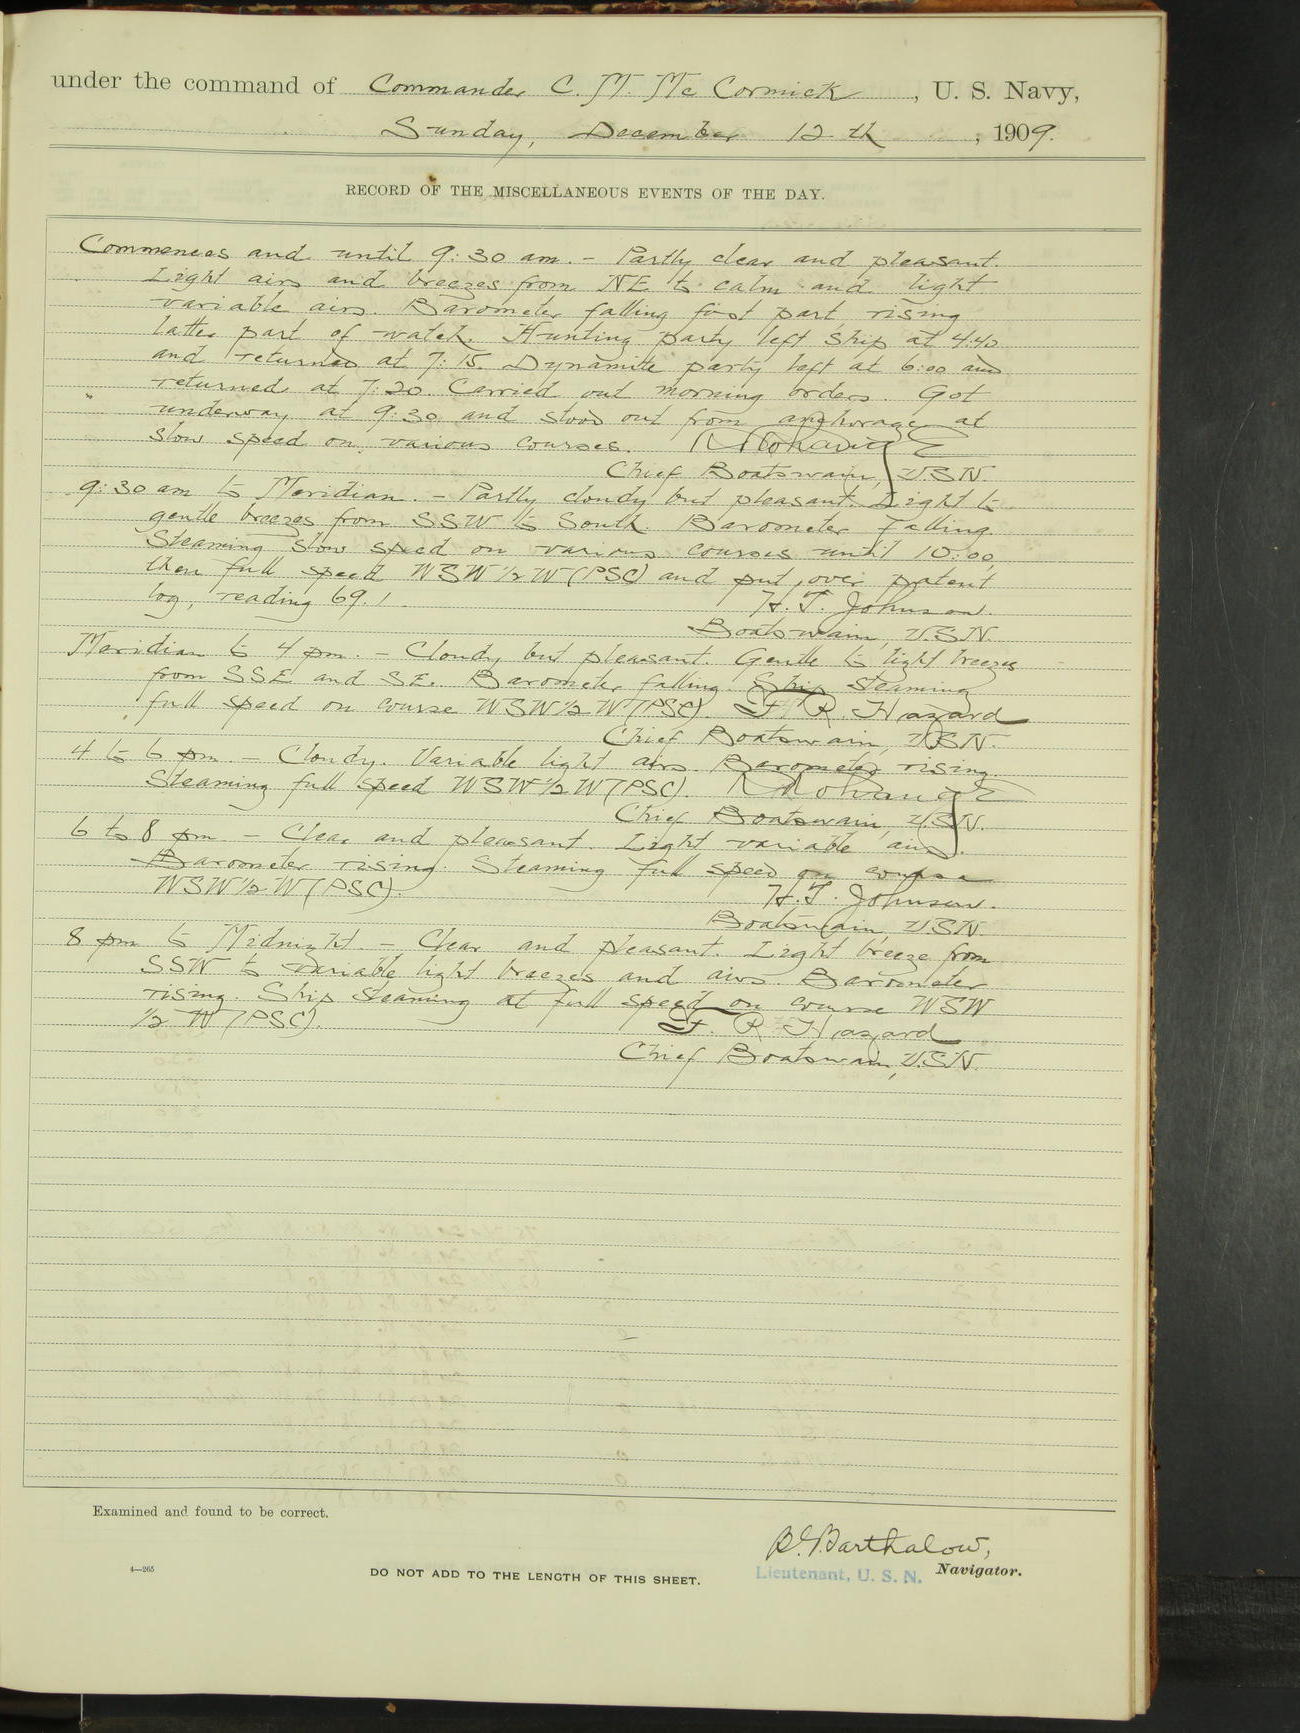 under the command of Commander C. M. Mc Cormick, U. S. Navy,
Sunday, December 12th, 1909.
RECORD OF THE MISCELLANEOUS EVENTS OF THE DAY.
Commences and until 9:30 am. - Partly clear and pleasant.
Light airs and breezes from NE to calm and light
variable airs. Barometer falling first part, rising
latter part of watch. Hunting party left ship at 4:40
and returned at 7:15. Dynamite party left at 6:00 and
returned at 7:20. Carried out morning orders. Got
underway at 9:30 and stood out from anchorage at
slow speed on various courses.
Chief Boatswain, U.S.N.
9:30 am to Meridian. - Partly cloudy but pleasant. Light to
gentle breezes from SSW to South. Barometer falling.
Steaming slow speed on various courses until 10:00,
then full speed WSW 1/2 W (PSC) and put over patent
log, reading 69.1.
H. T. Johnson.
Boatswain, U.S.N.
Meridian to 4 pm. - Cloudy but pleasant. Gentle to light breezes
from SSE and SE. Barometer falling. Ship steaming
full speed on course WSW 1/2 W (PSC). F. R. Hazard
Chief Boatswain, U.S.N.
4 to 6 pm. - Cloudy. Variable light airs. Barometer rising.
Steaming full speed WSW 1/2 W (PSC).
Chief Boatswain, U.S.N.
6 to 8 pm - Clear and pleasant. Light variable airs.
Barometer rising. Steaming full speed on course
WSW 1/2 W (PSC).
H. T. Johnson.
Boatswain, U.S.N.
8 pm to Midnight. - Clear and pleasant. Light breeze from
SSW to variable light breezes and airs. Barometer
rising. Ship steaming at full speed on course WSW
1/2 W (PSC).
F. R. Hazard
Chief Boatswain, U.S.N.
Examined and found to be correct.
B. G. Barthalow,
Lieutenant, U. S. N. Navigator.
4—265
DO NOT ADD TO THE LENGTH OF THIS SHEET.